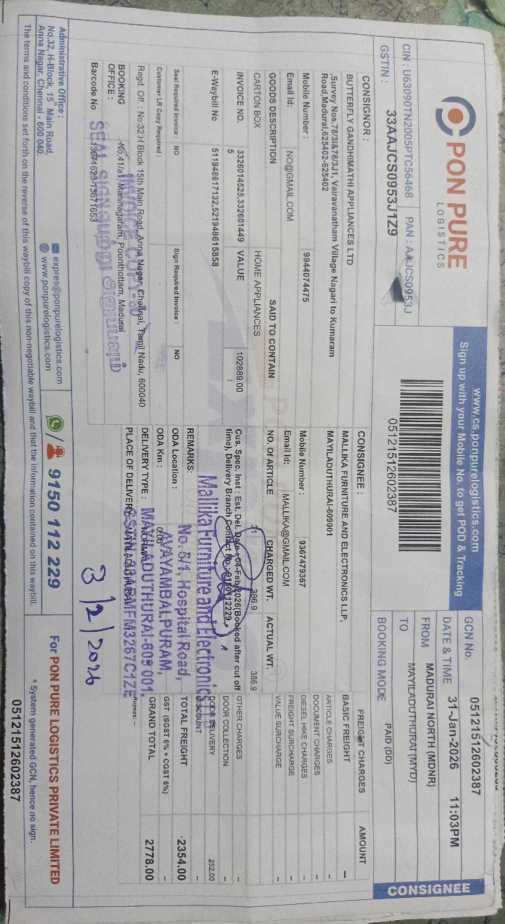 PON PURE
LOGISTICS
www.cs.ponpurelogistics.com
Sign up with your Mobile No. to get POD & Tracking
CIN : U63090TN2005PTC56468 PAN : AAJCS0953J
GSTIN : 33AAJCS0953J1Z9
05121512602387
GCN No. 05121512602387
DATE & TIME 31-Jan-2026 11:03PM
FROM MADURAI NORTH (MDNR)
TO MAYILADUTHURAI(MYD)
BOOKING MODE PAID (DD)
CONSIGNEE
CONSIGNOR :
BUTTERFLY GANDHIMATHI APPLIANCES LTD
Vairavanatham Village Nagari to Kumaram
Road,Madurai,625402-625402
Mobile Number : 9944074475
Email Id: NO@GMAIL.COM
CONSIGNEE :
MALLIKA FURNITURE AND ELECTRONICS LLP,
MAYILADUTHURAI-609001
Mobile Number : 9367479367
Email Id: MALLIKA@GMAIL.COM
GOODS DESCRIPTION SAID TO CONTAIN NO. OF ARTICLE CHARGED WT. ACTUAL WT.
CARTON BOX HOME APPLIANCES 386.9 386.9
INVOICE NO. 3326014528,332601449 VALUE 102889.00
5
E-Waybill No 511948617132,521948615858
Seal Required Invoice : NO Sign Required Invoice : NO
Customer LR Copy Required :
Regd. Off. : No:32,H Block 15th Main Road, Anna Nagar, Chennai, Tamil Nadu, 600040
BOOKING
OFFICE :
Maninagaram, Poonthottam, Madurai
Barcode No
Cus. Spec. Inst : Est. Del. Date
(Booked after cut off
time), Delivery Branch Contact No.
REMARKS:
ODA Location :
ODA Km :
DELIVERY TYPE :
PLACE OF DELIVERY
FREIGHT CHARGES AMOUNT
BASIC FREIGHT --
ARTICLE CHARGES
DOCUMENT CHARGES
DIESEL HIKE CHARGES
FREIGHT SURCHARGE
VALUE SURCHARGE
OTHER CHARGES
DOOR COLLECTION
DOOR DELIVERY 252.00
TOTAL FREIGHT 2354.00
GST (SGST 9% + CGST 9%)
GRAND TOTAL 2778.00
Mallika Furniture and Electronics
No. 5/1, Hospital Road,
AVAYAMBALPURAM,
MAYILADUTHURAI-609 001.
3/2/2026
Administrative Office :
No.32, H-Block, 15th Main Road,
Anna Nagar, Chennai - 600 040.
www.ponpurelogistics.com
9150 112 229
For PON PURE LOGISTICS PRIVATE LIMITED
* System generated GCN, hence no sign.
The terms and conditions set forth on the reverse of this waybill copy of this non-negotiable waybill and that the information contained on this waybill.
05121512602387